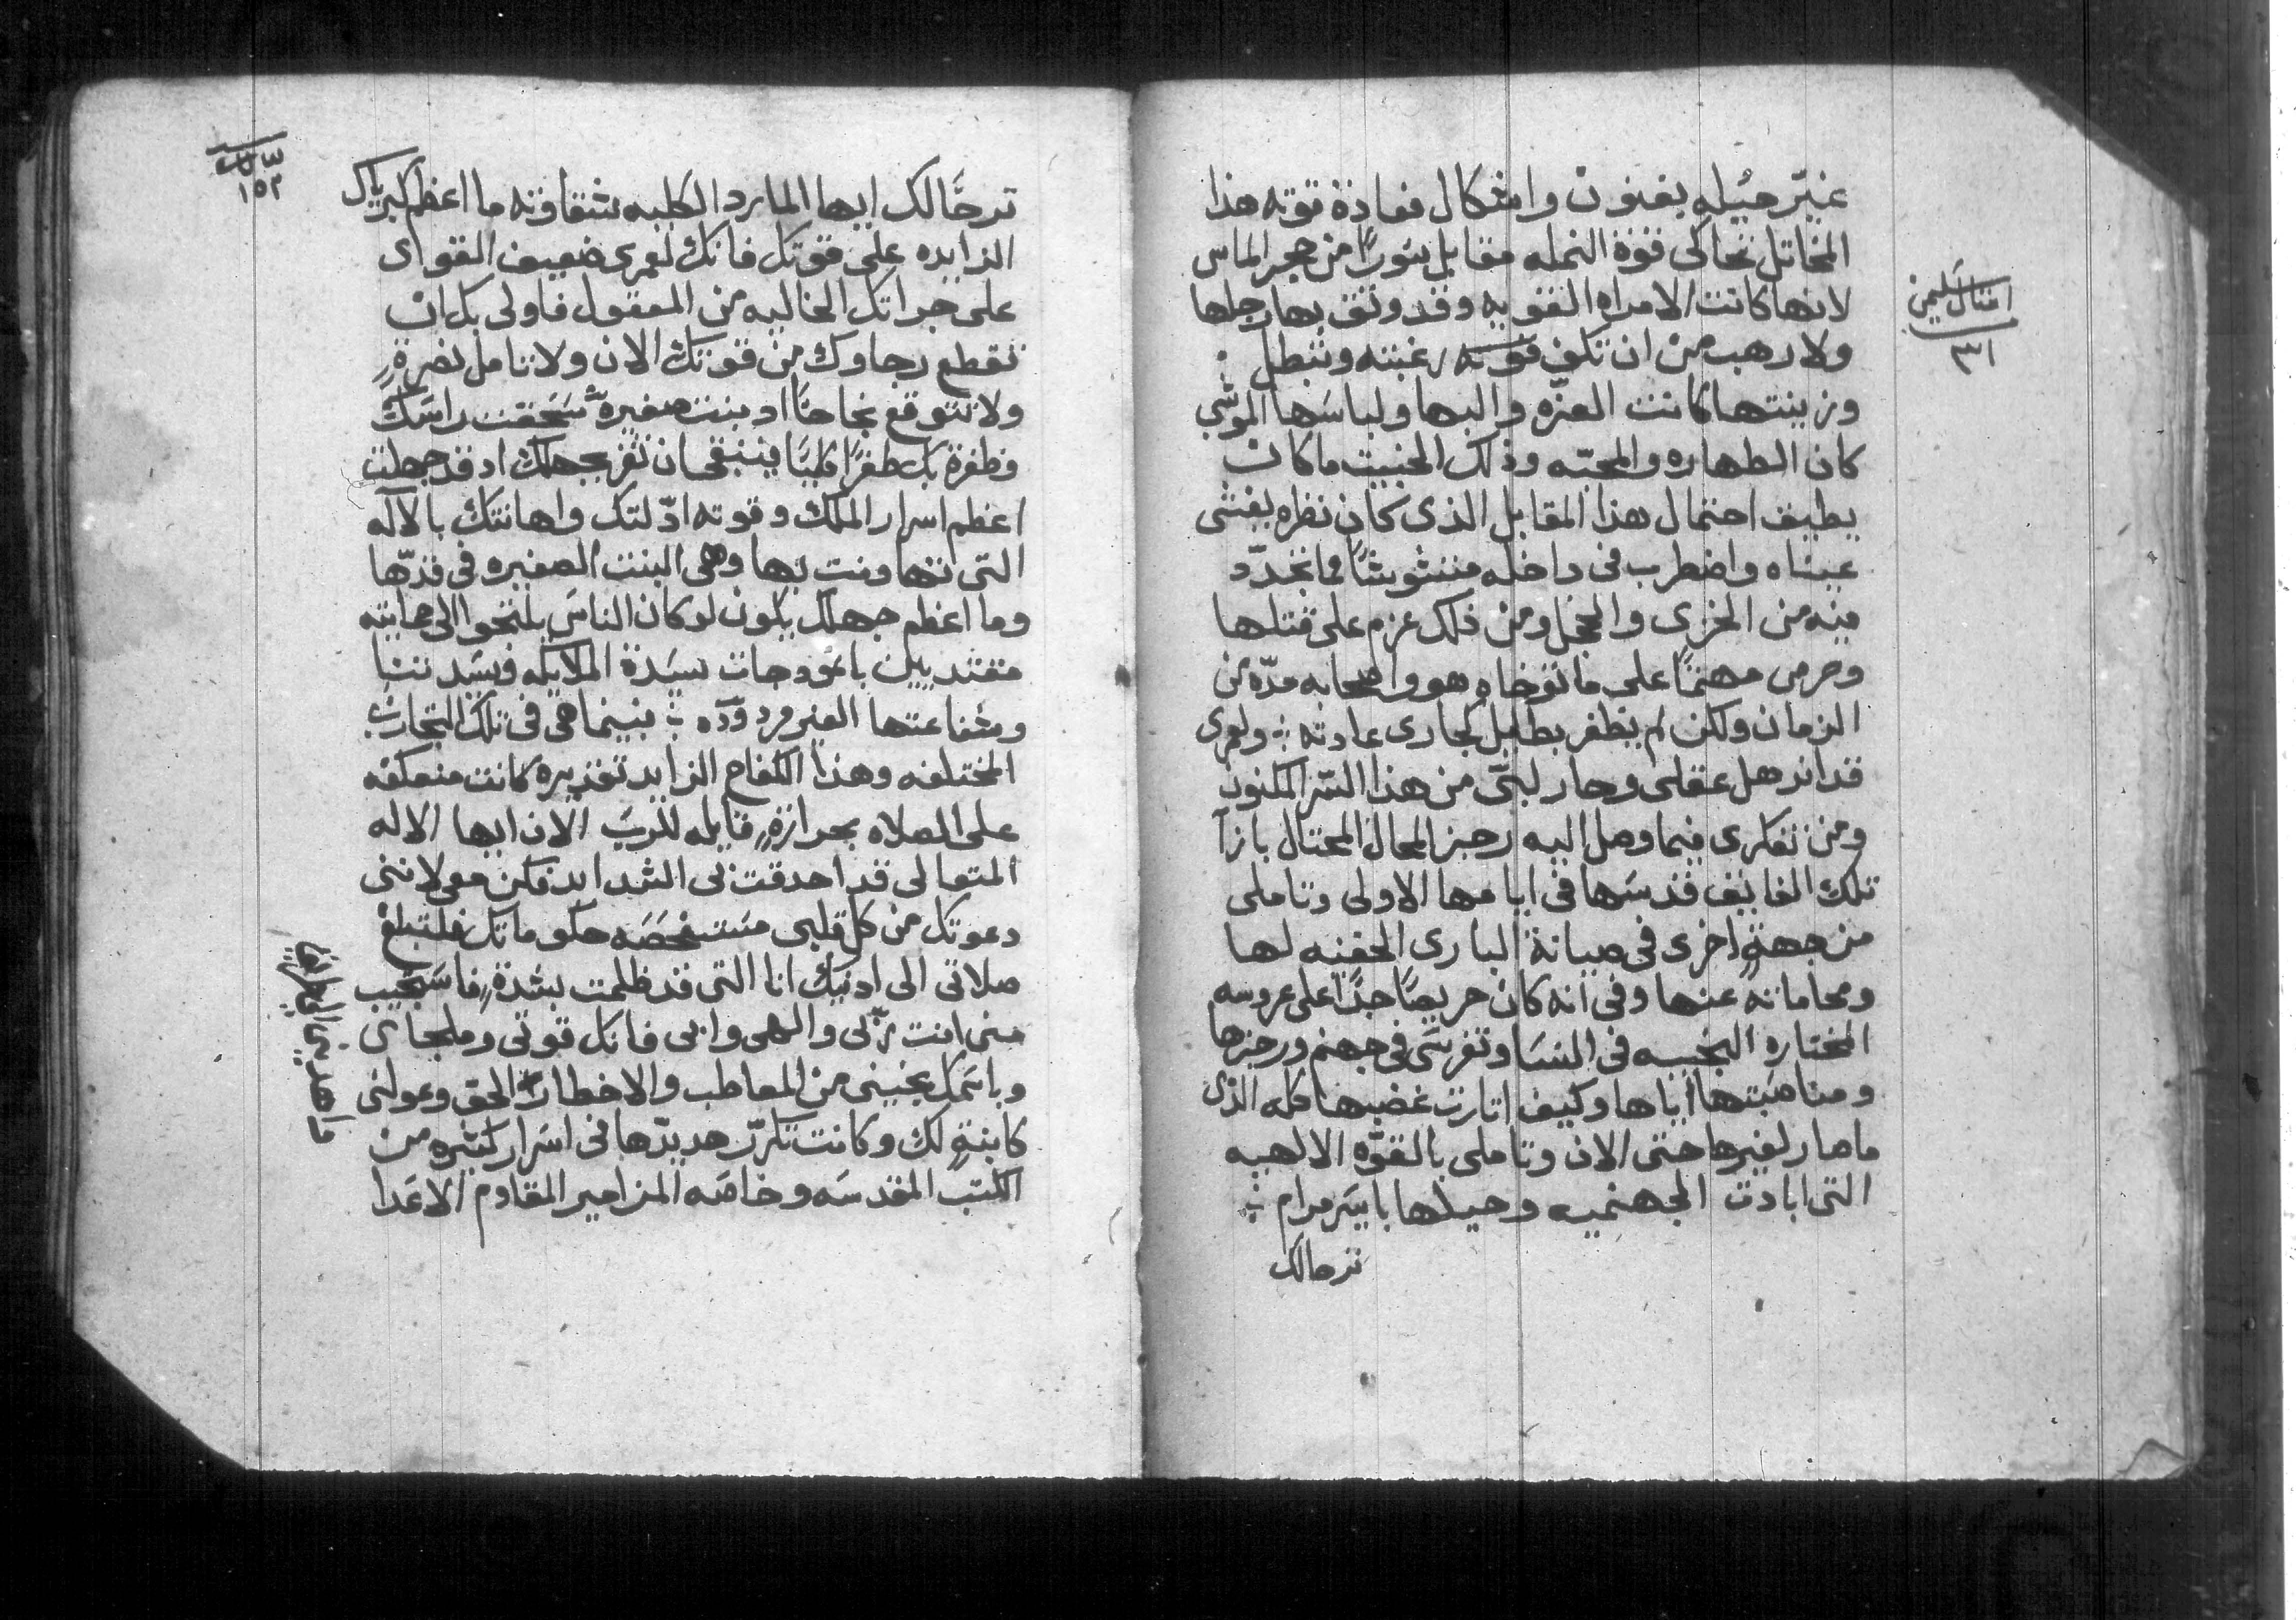 غيّر حيُله بفنون واشكال فعادة قوته هذا
المخاتل تحاكى قوة النمله مقابل سورًا من حجر الماس
لانها كانت الامراه القويه وقد وثق بها رجلها
ولا رهب من ان تكف قوته رغبته وتبطل ؛
وزينتها كانت العزّه والبها ولباسها الموشّى
كان الطهاره والمحبّه وذلك الخبيث ما كان
يطيف احتمال هذا المقابل الذى كان نظره يغشى
عيناه واضطرب فى داخله متشوشًا مما تجدّد
فيه من الخزى والخجل ومن ذلك عزم على قتلها
وحرص مهتمًا على ما توخاه هو واصحابه مدّه من
الزمان ولكن لم يظفر بطايل كجارى عادته ؛ ولعمرى
قد اندهل عقلى وحار لبّى من هذا السّر المكنون
ومن تفكرى فيما وصل اليه رجز المحال المحتال بازآ
تلك الفايق قدسها فى ايامها الاولى وتاملى
من جهةٍ اخرى فى صيانة البارى الخفيه لها
ومحاماته عنها وفى انه كان حريصًا جدًا على عروسه
المختاره النجيبه فى النسا وتفرسّى فى جهنم ورجزها
ومناصبتها اياها وكيف اثارت غضبها كله الذى
ما صار لغيرها حتى الان وتاملى بالقوّه الالهيه
التى ابادت الجهنميه وحيلها بايسر مرام ؛
ترحالك
امثال سليمن
٣١
ترحًا لك ايها المارد الكليه شقاوته ما اعظم كبرياك
الزايده على قوتك فانك لعمرى ضعيف القواى
على جراتك الخاليه من المعقول فاولى بك ان
تقطع رجاوك من قوتك الان ولا تامل نصرةٍ
ولا تتوقع نجاحًا اد بنت صغيرةً سحقت راسك
وظفرة بك ظفرًا كليًا فينبغى ان تقر بجهلك اد قد جهلت
اعظم اسرار الملك وقوته ادّلتك واهانتك بالاله
التى تهاونت بها وهى البنت الصغيره فى قدّها
وما اعظم جهلك يكون لو كان الناس يلتجوا الى حمايته
مقتديين بانمودجات سيدة الملايكه وسيدتنا
وشفاعتها الغير مردوده ؛ بينما هى فى تلك التجارب
المختلفه وهذا الكفاح الزايد تقديره كانت منعكفه
على الصلاه بحرارةٍ قايله للرب الان ايها الاله
المتعالى قد احدقت بى الشدايد فكن معى لاننى
دعوتك من كل قلبى مستفحصه حكوماتك فلتبلغ
صلاتى الى ادنيك انا التى قد ظلمت بشدةٍ فاستجيب
منى انت ربّى والهى وابى فانك قوتى وملجاى
وباسمك بنجينى من المعاطب والاخطار الحق وعولنى
كابنةٍ لك وكانت تكرّر هديدّها فى اسرار كثيره من
الكتب المقدسه وخاصه المزامير المقاوم الاعدا
١٥٢